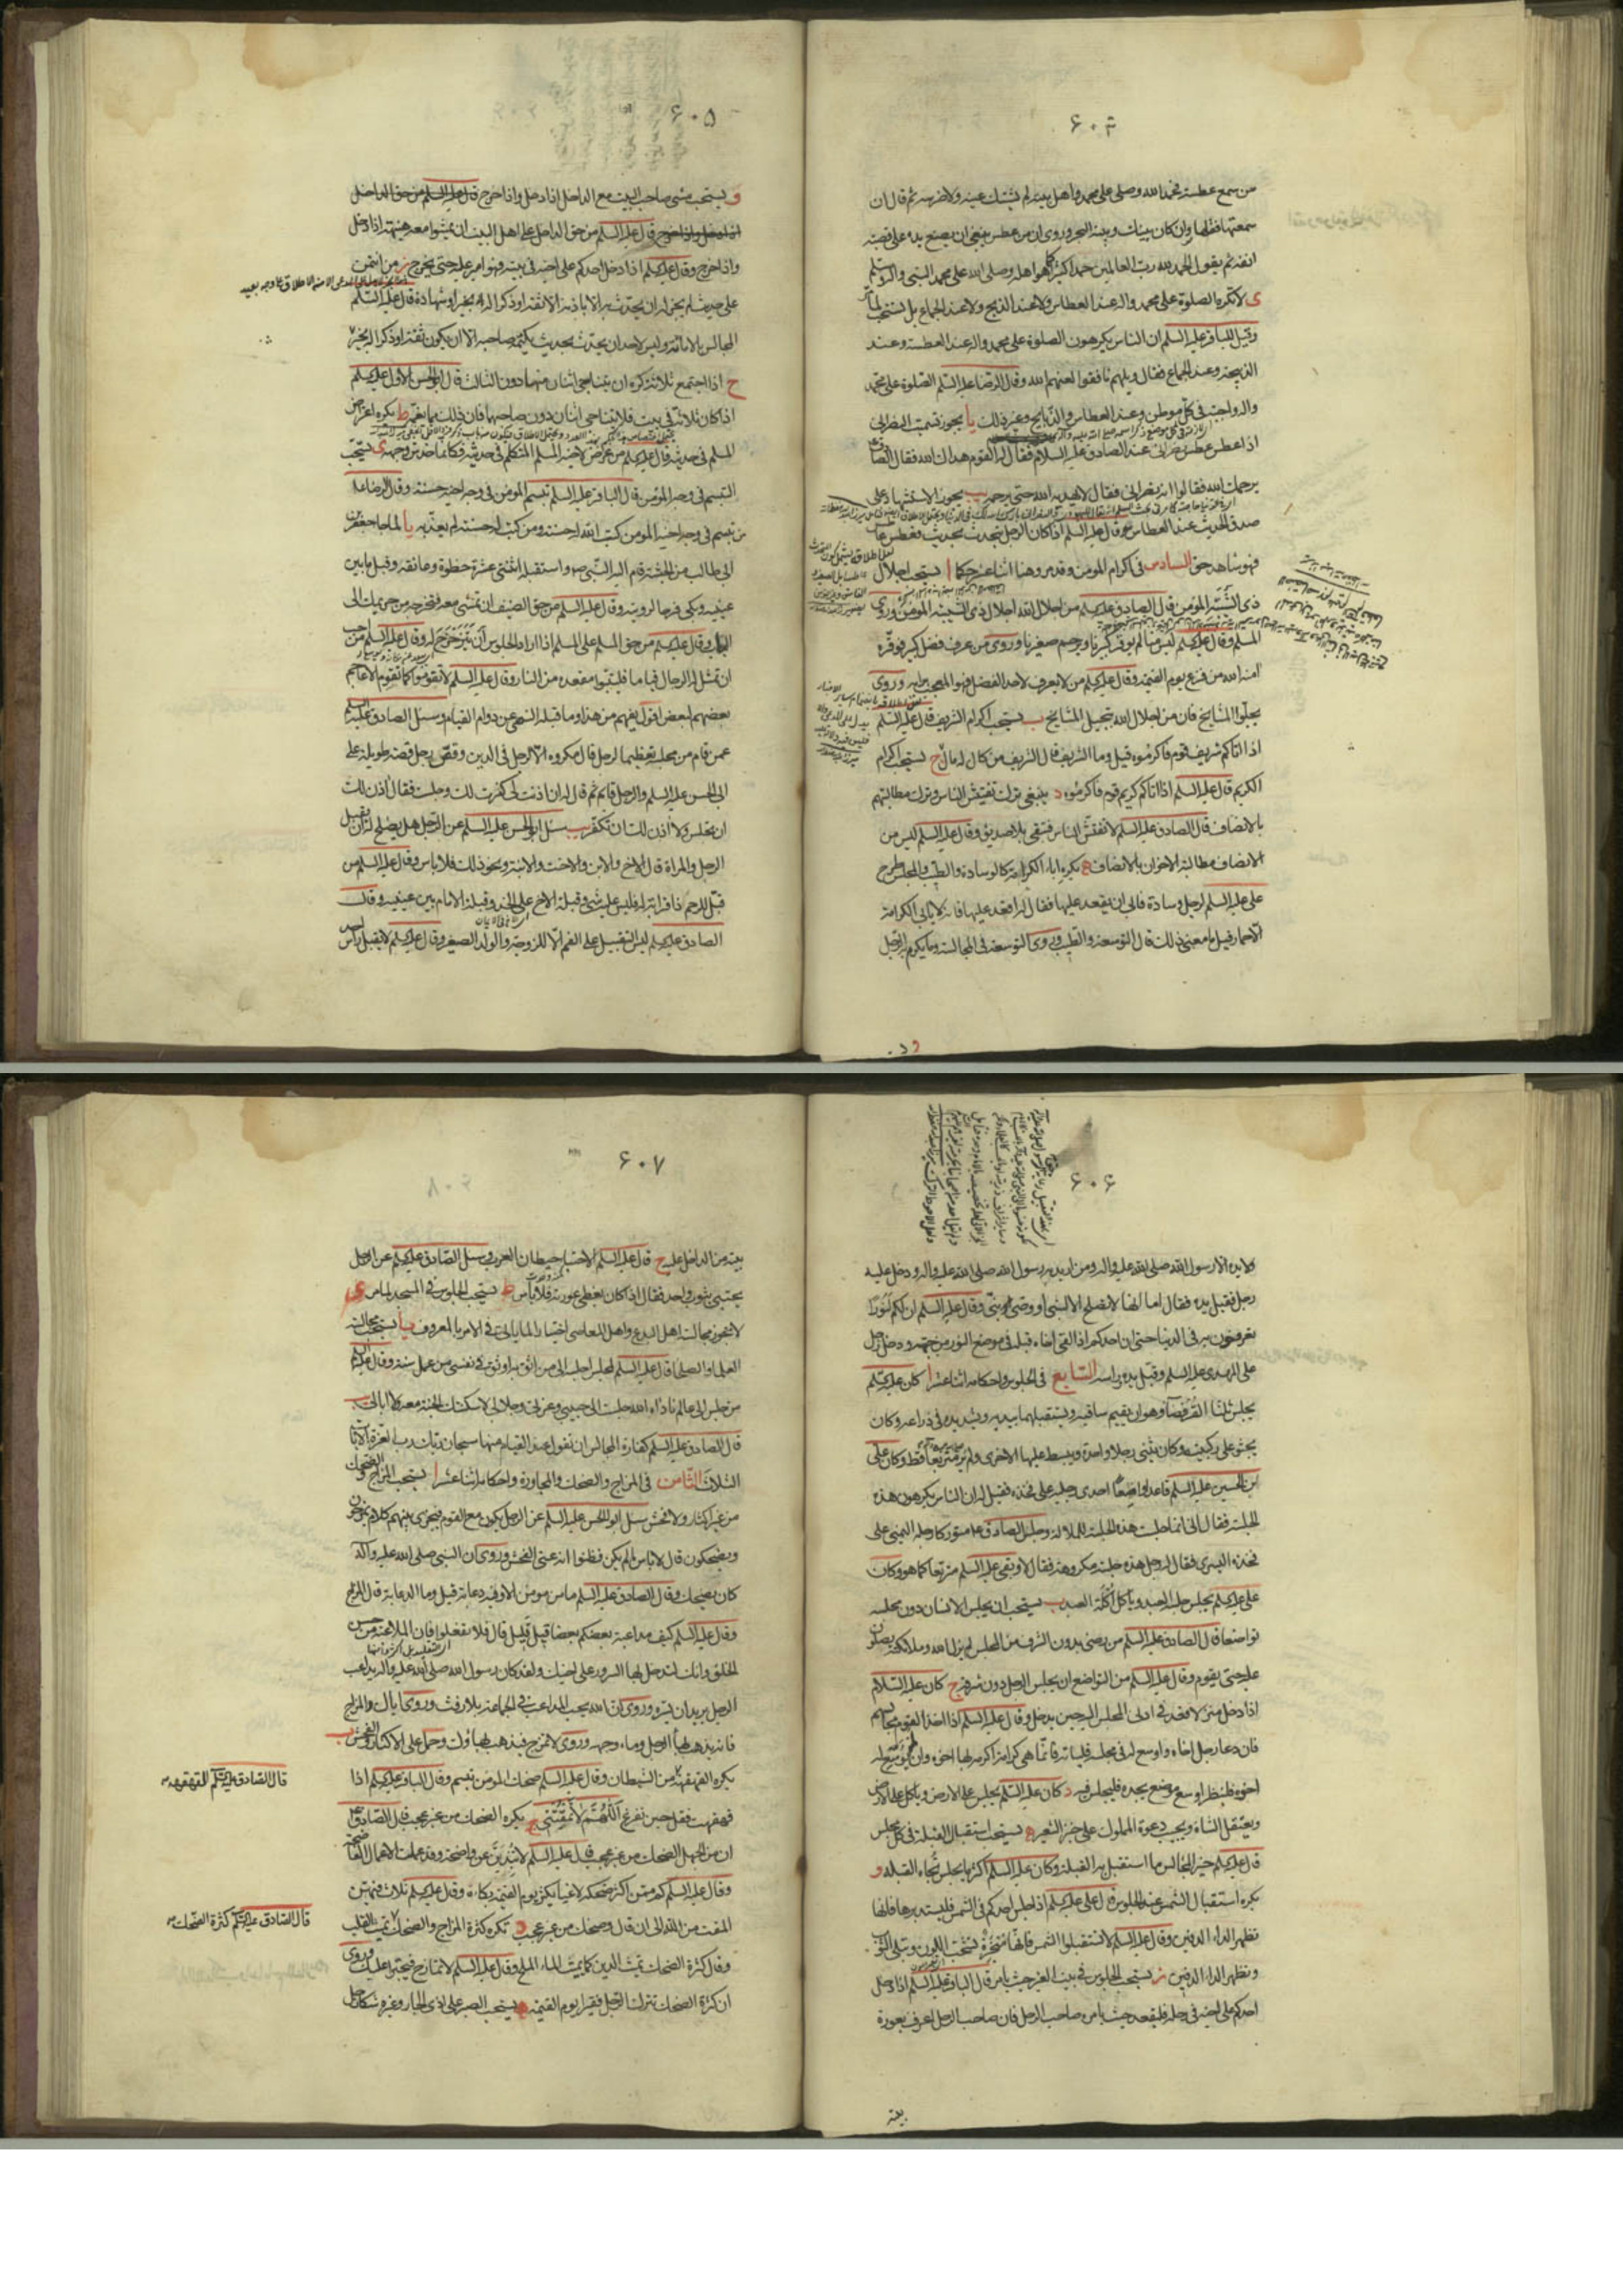 ۶۰۴
من سمع عطسة فحمد الله وصلى على محمد واهل بيته لم يشتك عينه ولا ضرسه ثم قال ان
سمعتها فقلها وان كان بينك وبينه البحر وروى ان من عطس ينبغي ان يضع يده على قصبة
انفه ثم يقول الحمد لله رب العالمين حمدا كثيرا كما هو اهله وصلى الله على محمد النبي واله وسلم
ى لا تكره الصلوة على محمد واله عند العطاس ولا عند الذبح ولا عند الجماع بل تستحب لما مر
وقيل للباقر عليه السلم ان الناس يكرهون الصلوة على محمد واله عند العطسة وعند
الذبيحة وعند الجماع فقال ويلهم نافقوا لعنهم الله وقال الرضا عليه السلم الصلوة على محمد
واله واجبة في كل موطن وعند العطاس والذبايح وغير ذلك يا يجوز تسميت النصراني
اذا عطس عطس نصراني عند الصادق عليه السلام فقال له القوم هداك الله فقال الصادق
يرحمك الله فقالوا انه نصراني فقال لا يهديه الله حتى يرحمه يب يجوز الاستشهاد على
صدق الحديث عند العطاس قال عليه السلم اذا كان الرجل يتحدث بحديث فعطس عاطس
فهو شاهد حق السادس في اكرام المؤمن وقد مر وهنا اثنا عشر حكما ا يستحب اجلال
ذي الشيبة المؤمن قال الصادق عليه السلم من اجلال الله اجلال ذي الشيبة المؤمن وروى
المسلم وقال عليه السلم ليس منا من لم يوقر كبيرنا ويرحم صغيرنا وروى من عرف فضل كبير فوقره
امنه الله من فزع يوم القيمة وقال عليه السلم من لا يعرف لاحد الفضل فهو المعجب برايه وروى
بجلوا المشايخ فان من اجلال الله تبجيل المشايخ ب يستحب اكرام الشريف قال عليه السلم
اذا اتاكم شريف قوم فاكرموه قيل وما الشريف قال الشريف من كان له مال ج يستحب اكرام
الكريم قال عليه السلم اذا اتاكم كريم قوم فاكرموه د ينبغي ترك تفتيش الناس وترك مطالبتهم
بالانصاف قال الصادق عليه السلم لا تفتش الناس فتبقى بلا صديق وقال عليه السلم ليس من
الانصاف مطالبة الاخوان بالانصاف ه يكره اباء الكرامة كالوسادة والطيب والمجلس طرح
على عليه السلم لرجل وسادة فابى ان يقعد عليها فقال له اقعد عليها فانه لا يابى الكرامة
الا حمار قيل ما معنى ذلك قال التوسعة والطيب وروى التوسعة في المجالسة وما يكرم به الرجل
۶۰۵
و يستحب مشى صاحب البيت مع الداخل اذا دخل واذا خرج قال عليه السلم من حق الداخل
اذا دخل واذا خرج قال عليه السلم من حق الداخل على اهل البيت ان يمشوا معه هنيهة اذا دخل
واذا خرج وقال عليه السلم اذا دخل احدكم على اخيه في بيته فهو امير عليه حتى يخرج ز من ائتمن
على حديث لم يجز له ان يحدث به الا باذنه الا لثقة او ذكرا له بخير او شهادة قال عليه السلم
المجالس بالامانة وليس لاحد ان يحدث بحديث يكتمه صاحبه الا ان يكون ثقة او ذكرا له بخير
ح اذا اجتمع ثلاثة كره ان يتناجى اثنان منهما دون الثالث قال ابو الحسن الاول عليه السلم
اذا كان ثلاثة في بيت فلا يتناجى اثنان دون صاحبهما فان ذلك مما يغمه ط يكره اعتراض
المسلم في حديثه قال عليه السلم من عرض لاخيه المسلم المتكلم في حديثه فكانما خدش وجهه ى يستحب
التبسم في وجه المؤمن قال الباقر عليه السلم تبسم المؤمن في وجه اخيه حسنة وقال الرضا عليه
من تبسم في وجه اخيه المؤمن كتب الله له حسنة ومن كتب له حسنة لم يعذبه يا لما جا جعفر بن
ابي طالب من الحبشة قام اليه النبي ص واستقبله اثنتي عشرة خطوة وعانقه وقبل ما بين
عينيه وبكى فرحا لرؤيته وقال عليه السلم من حق الضيف ان تمشى معه فتخرجه من حريمك الى
الباب وقال عليه السلم من حق المسلم على المسلم اذا اراد الجلوس ان يتزحزح له وقال عليه السلم من احب
ان تمثل له الرجال قياما فليتبوا مقعده من النار وقال عليه السلم لا تقوموا كما تقوم الاعاجم
بعضهم لبعض اقول يفهم من هذا وما قبله النهى عن دوام القيام وسئل الصادق عليه السلم
عمن قام من مجلسه تعظيما لرجل قال مكروه الا لرجل في الدين وقص رجل قصة طويلة على
ابي الحسن عليه السلم والرجل قائم ثم قال له ان اذنت لي كفرت لك وجلست فقال اذن لك
ان تجلس ولا اذن لك ان تكفر يب سئل ابو الحسن عليه السلم عن الرجل هل يصلح له ان يقبل
الرجل والمراة قال الاخ والابن والاخت والابنة ونحو ذلك فلا باس وقال عليه السلم من
قبل للرحم ذا قرابة له فليس عليه شئ وقبلة الاخ على الخد وقبلة الامام بين عينيه وقال
الصادق عليه السلم ليس التقبيل على الفم الا للزوجة والولد الصغير وقال عليه السلم لا يقبل راس احد
۶۰۶
ولا يده الا رسول الله صلى الله عليه واله ومن اريد به رسول الله صلى الله عليه واله ودخل عليه
رجل فقبل يده فقال اما انها لا تصلح الا لنبي او وصى نبي وقال عليه السلم ان لكم لنورا
تعرفون به في الدنيا حتى ان احدكم اذا لقى اخاه قبله في موضع النور من جبهته ودخل رجل
على المهدى عليه السلم وقبل يده وراسه السابع في الجلوس واحكامه اثنا عشر ا كان عليه السلم
يجلس ثلثا القرفصا وهو ان يقيم ساقيه ويستقبلهما بيديه ويشد يده في ذراعه وكان
يجثو على ركبتيه وكان يثنى رجلا واحدة ويبسط عليها الاخرى ولم ير متربعا قط وكان على
بن الحسين عليه السلم قاعدا واضعا احدى رجليه على فخذه فقيل له ان الناس يكرهون هذه
الجلسة فقال اني انما جلست هذه الجلسة للملالة وجلس الصادق ع متوركا رجله اليمنى على
فخذه اليسرى فقال له رجل هذه جلسة مكروهة فقال لا وبقى عليه السلم متربعا كما هو وكان
على عليه السلم يجلس جلسة العبد وياكل اكلة العبد ب يستحب ان يجلس الانسان دون مجلسه
تواضعا قال الصادق عليه السلم من رضى بدون الشرف من المجلس لم يزل الله وملائكته يصلون
عليه حتى يقوم وقال عليه السلم من التواضع ان يجلس الرجل دون شرفه ج كان عليه السلام
اذا دخل منزلا قعد في ادنى المجلس اليه حين يدخل وقال عليه السلم اذا اخذ القوم مجالسهم
فان دعا رجل اخاه واوسع له في مجلسه فلياته فانما هي كرامة اكرمه بها اخوه وان لم يوسع له
اخوه فلينظر اوسع موضع يجده فليجلس فيه د كان عليه السلم يجلس على الارض وياكل على الارض
ويعتقل الشاة ويجيب دعوة المملوك على خبز الشعير ه يستحب استقبال القبلة في كل مجلس
قال عليه السلم خير المجالس ما استقبل به القبلة وكان عليه السلم اكثر ما يجلس تجاه القبلة و
يكره استقبال الشمس عند الجلوس قال على عليه السلم اذا جلس احدكم في الشمس فليستدبرها فانها
تظهر الداء الدفين وقال عليه السلم لا تستقبلوا الشمس فانها مبخرة تشحب اللون وتبلى الثوب
وتظهر الداء الدفين ز يستحب الجلوس في بيت الغير حيث يامر قال الباقر عليه السلم اذا دخل
احدكم على اخيه في رحله فليقعد حيث يامر صاحب الرحل فان صاحب الرحل اعرف بعورة
بيته
۶۰۷
بيته من الداخل عليه ح قال عليه السلم الاحتباء حيطان العرب وسئل الصادق عليه السلم عن الرجل
يحتبى بثوب واحد فقال اذا كان يغطى عورته فلا باس ط يستحب الجلوس في المسجد لما مر ى
لا تجوز مجالسة اهل البدع واهل المعاصى اختيارا لما ياتى في الامر بالمعروف يا يستحب مجالسة
العلما والصلحا قال عليه السلم لمجلس اجلسه الى من اثق به اوثق في نفسى من عمل سنة وقال عليه السلم
من جلس الى عالم ناداه الله جلست الى حبيبى وعزتى وجلالى لاسكنتك الجنة معه ولا ابالى يب
قال الصادق عليه السلم كفارة المجالس ان تقول عند القيام منها سبحان ربك رب العزة الايات
الثلاث الثامن في المزاح والضحك والمجاورة واحكامه اثنا عشر ا يستحب المزاح والضحك
من غير اكثار ولا فحش سئل ابو الحسن عليه السلم عن الرجل يكون مع القوم فيجرى بينهم كلام يمزحون
ويضحكون قال لا باس ما لم يكن فظنوا انه عنى الفحش وروى ان النبي صلى الله عليه واله
كان يضحك وقال الصادق عليه السلم ما من مومن الا وفيه دعابة قيل وما الدعابة قال المزاح
وقال عليه السلم كيف مداعبة بعضكم بعضا قيل قليل قال فلا تفعلوا فان المداعبة من حسن
الخلق وانك لتدخل بها السرور على اخيك ولقد كان رسول الله صلى الله عليه واله يداعب
الرجل يريد ان يسره وروى ان الله يحب المداعب في الجماعة بلا رفث وروى اياك والمزاح
فانه يذهب بهاء الرجل وماء وجهه وروى لا تمزح فيذهب بهاؤك وحمل على الاكثار والفحش ب
يكره القهقهة من الشيطان وقال عليه السلم ضحك المؤمن تبسم وقال الباقر عليه السلم اذا
قال الصادق عليه السلم القهقهة صح
قهقهت فقل حين تفرغ اللهم لا تمقتني ج يكره الضحك من غير عجب قال الصادق عليه
ان من الجهل الضحك من غير عجب قال عليه السلم لا تبدين عن واضحة وقد عملت الاعمال الفاضحة
وقال عليه السلم كم ممن اكثر ضحكه لاغيا يكثر يوم القيمة بكاءه وقال عليه السلم ثلاث فيهن
المقت من الله الى ان قال وضحك من غير عجب د تكره كثرة المزاح والضحك تميت القلب
قال الصادق عليه السلم كثرة الضحك صح
وقال كثرة الضحك تميث الدين كما يميث الماء الملح وقال عليه السلم لا تمازح فيجترا عليك وروى
ان كثرة الضحك تترك الرجل فقيرا يوم القيمة ه يستحب الصبر على اذى الجار وغيره شكا رجل